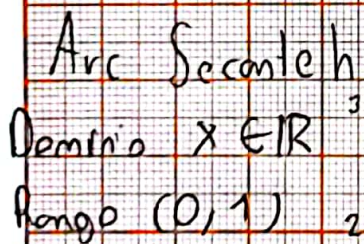 Arc Secante h
Dominio x ∈ ℝ
Rango (0, 1)